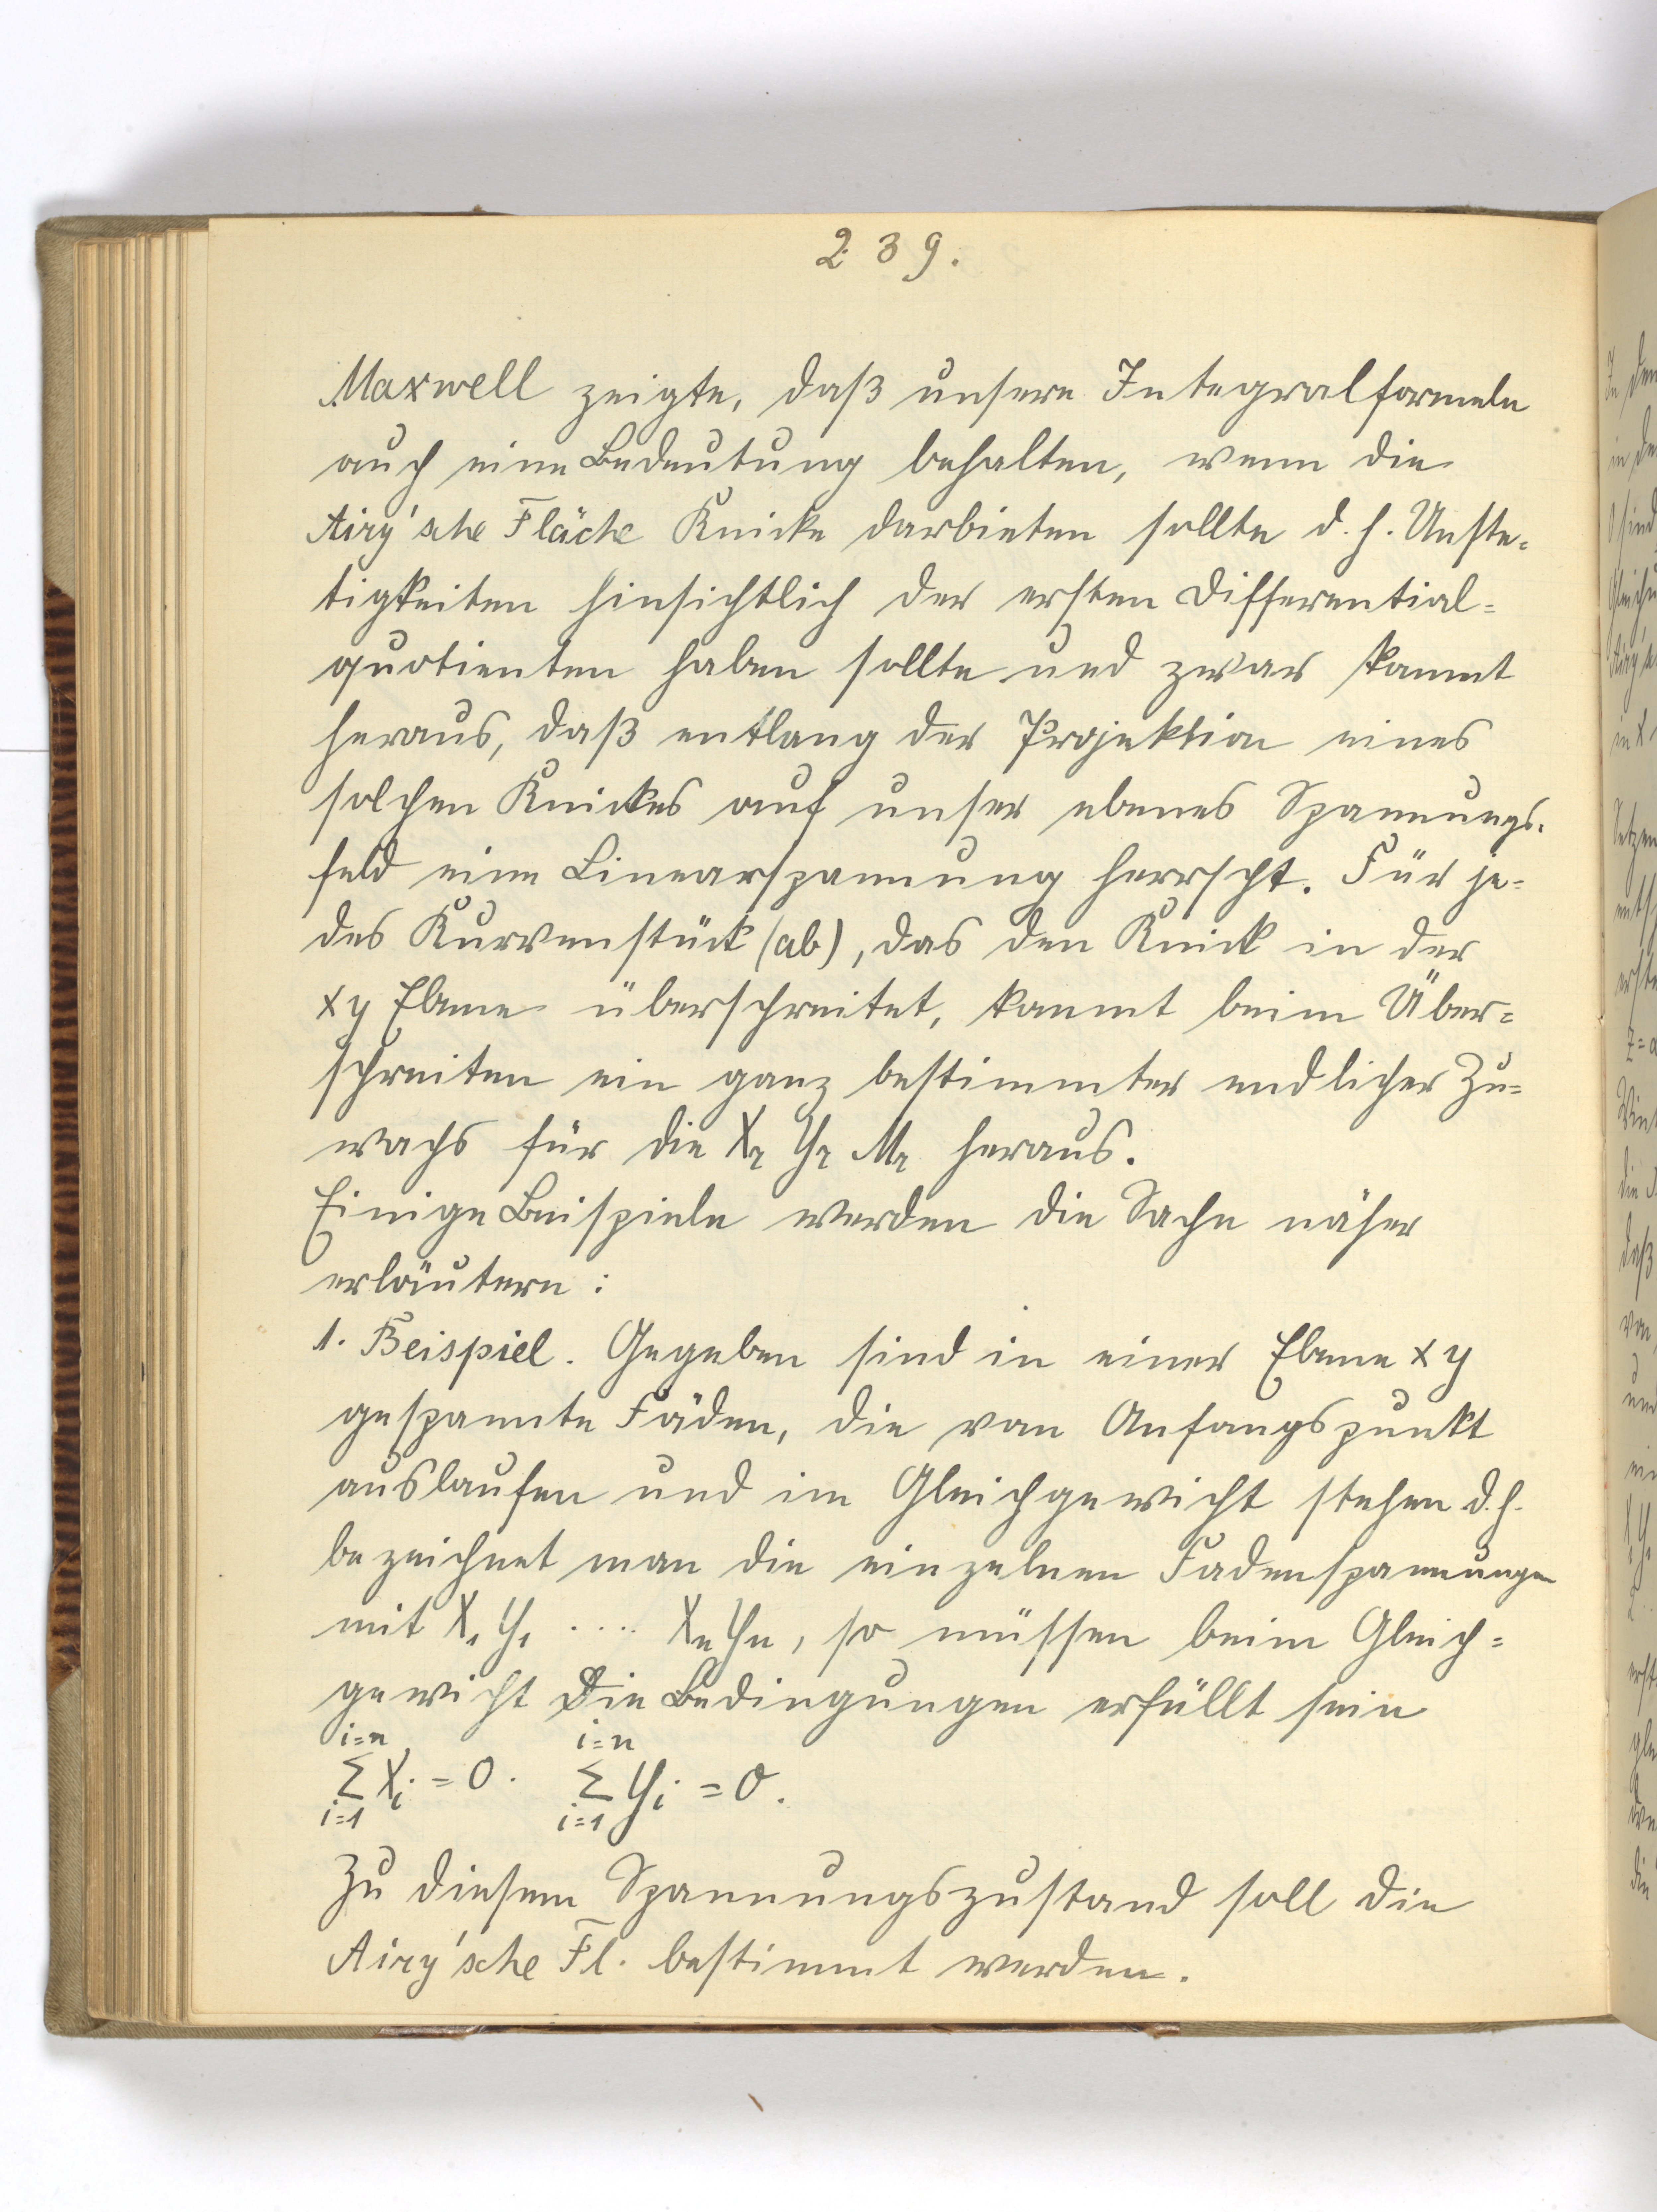 239.
Maxwell zeigte, daß unsere Integralformeln
auch eine Bedeutung behalten, wenn die
Airy'sche Fläche Knicke darbieten sollte d.h. Unste-
tigkeiten hinsichtlich der ersten Differential-
quotienten haben sollte und zwar kommt
heraus, daß entlang der Projektion eines
solchen Knickes auf unser ebenes Spannungs-
feld eine Linearspannung herrscht. Für je-
des Kurvenstück (ab), das den Knick in der
xy Ebene überschreitet, kommt beim Über-
schreiten ein ganz bestimmter endlicher Zu-
wachs für die X_r Y_r M_r heraus.
Einige Beispiele werden die Sache näher
erläutern:
1. Beispiel. Gegeben sind in einer Ebene xy
gespannte Fäden, die vom Anfangspunkt
auslaufen und im Gleichgewicht stehen d.h.
bezeichnet man die einzelnen Fadenspannungen
mit X₁ Y₁ .... Xₙ Yₙ, so müssen beim Gleich-
gewicht die Bedingungen erfüllt sein
i=n i=n
Σ Xᵢ = 0. Σ Yᵢ = 0.
i=1 i=1
Zu diesem Spannungszustand soll die
Airy'sche Fl. bestimmt werden.